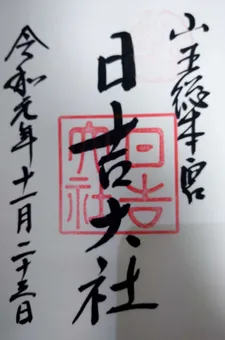 山王総本宮
日吉大社
日吉大社
令和元年十一月二十三日